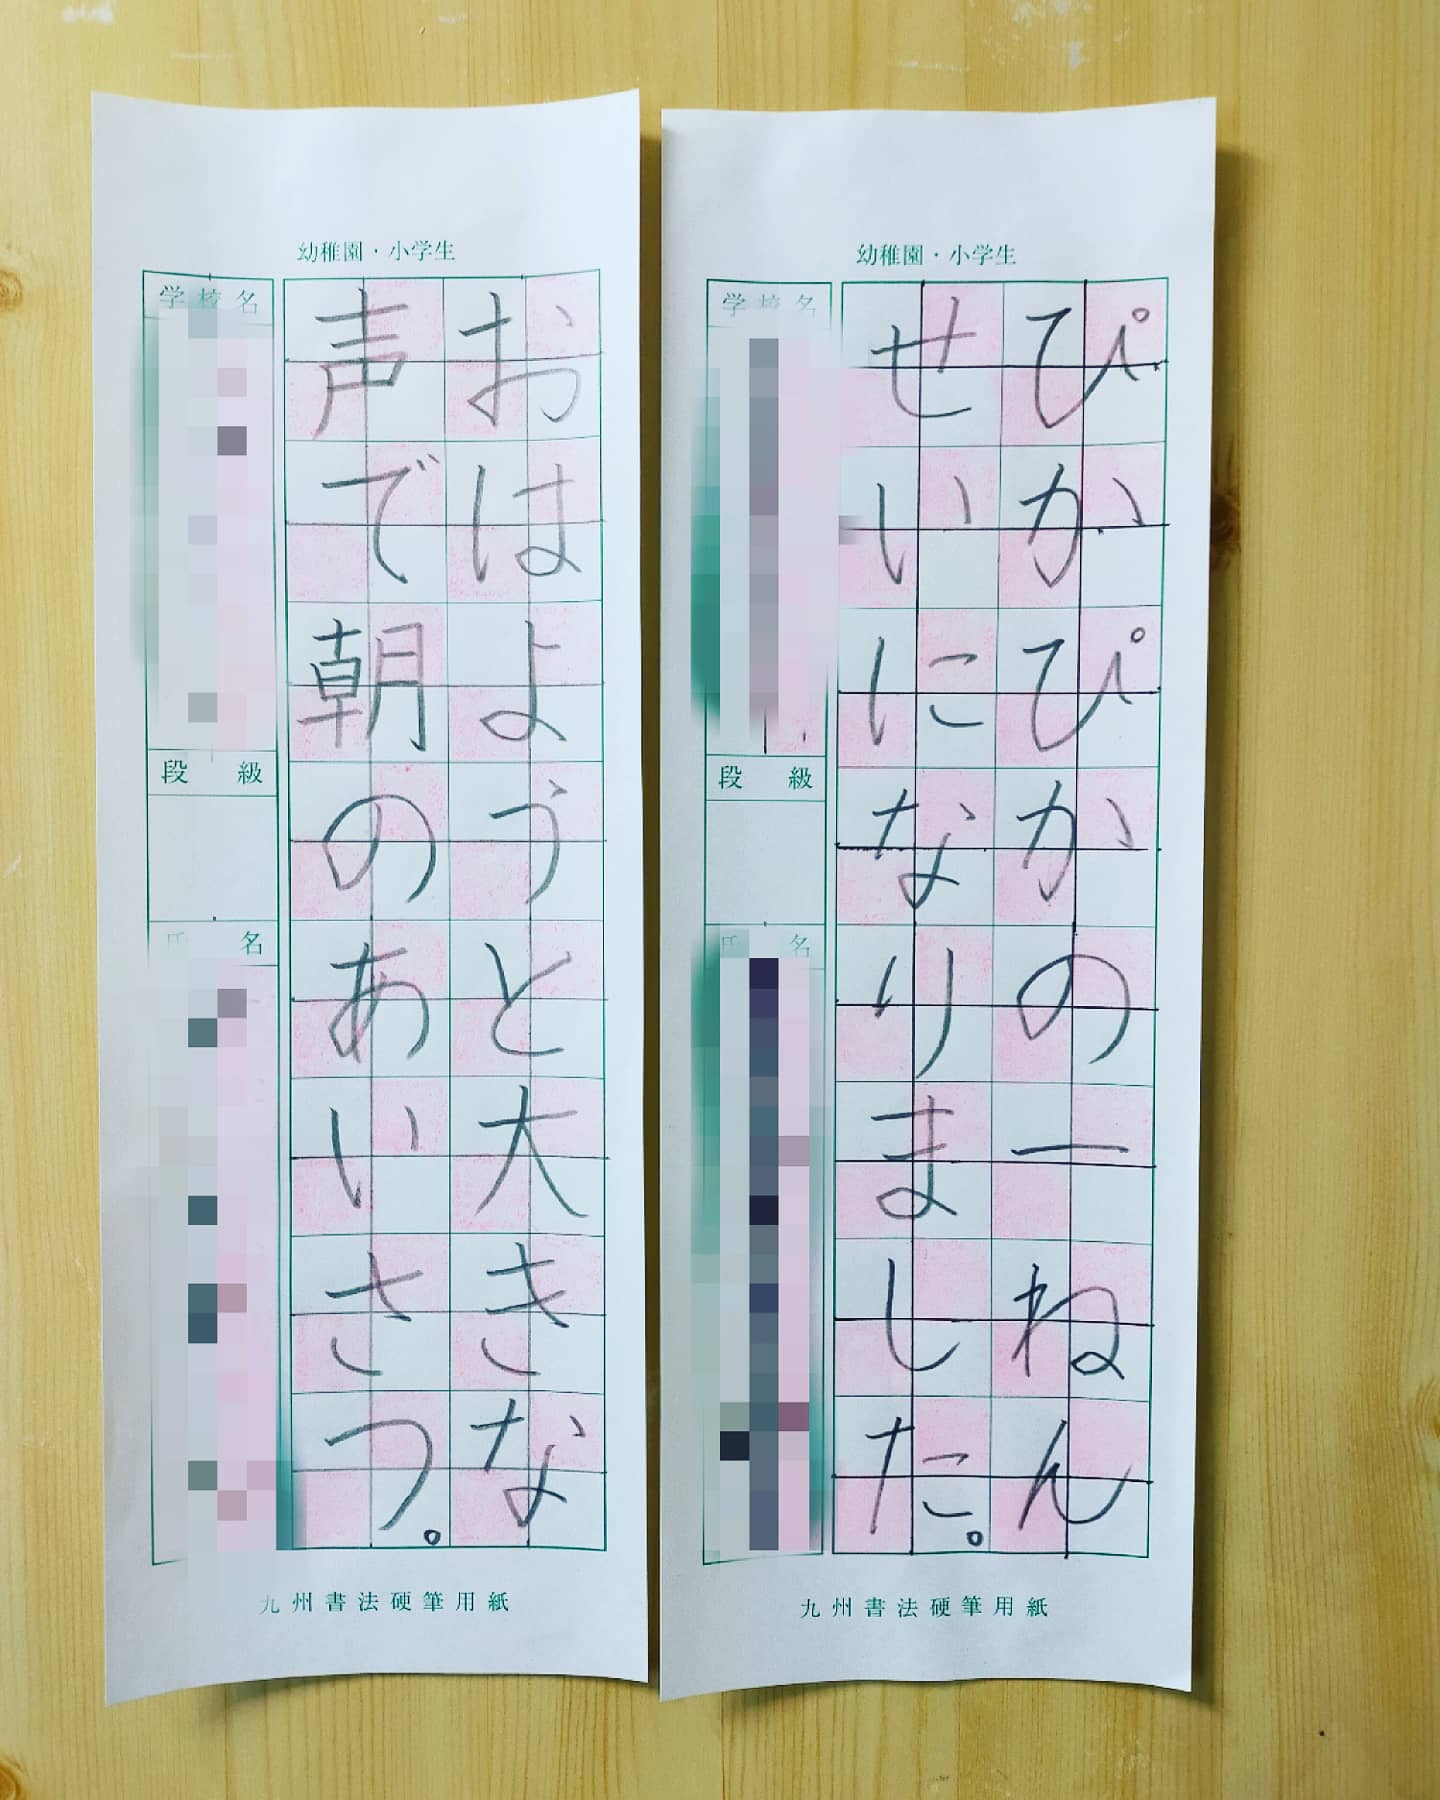 幼稚園・小学生
ぴかぴかの一ねん
せいになりました。
学校名
段級
氏名
九州書法硬筆用紙
幼稚園・小学生
おはようと大きな
声で朝のあいさつ。
学校名
段級
氏名
九州書法硬筆用紙